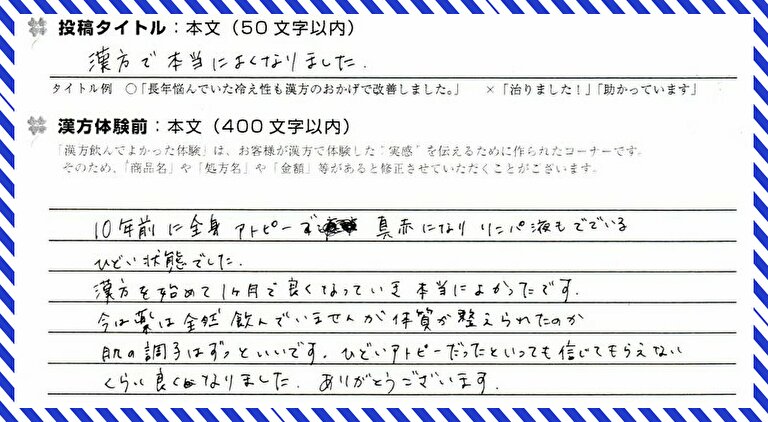 投稿タイトル：本文（50文字以内）
漢方で本当によくなりました.
タイトル例 ○「長年悩んでいた冷え性も漢方のおかげで改善しました。」 ×「治りました！」「助かっています」
漢方体験前：本文（400文字以内）
「漢方飲んでよかった体験」は、お客様が漢方で体験した"実感"を伝えるために作られたコーナーです。
そのため、「商品名」や「処方名」や「金額」等があると修正させていただくことがございます。
10年前に全身アトピーで 真赤になり リンパ液もでている
ひどい状態でした.
漢方を始めて1ヶ月で良くなっていき本当によかったです.
今は薬は全然飲んでいませんが体質が整えられたのか
肌の調子はずっといいです. ひどいアトピーだったといっても信じてもらえない
くらい良くなりました. ありがとうございます.